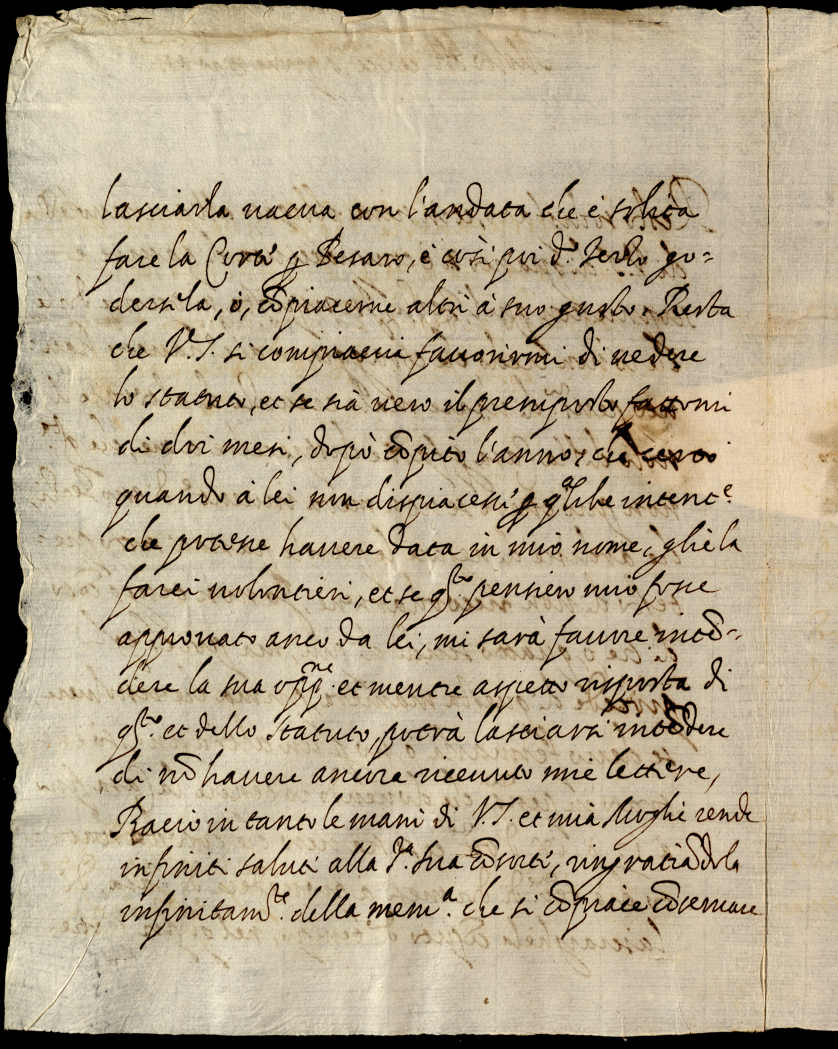 lasciarla vacua con l'andata che è solita
fare la Corte p Pesaro, e così poi d.º Serlo go=
dersela, ò, cõpiacerne altri à suo gusto. Resta
che V.S. si compiaccia favorirmi di vedere
lo statuto, et se sià vero il presuposto fattomi
di doi mesi, dopò cõpito l'anno, che certo
quando à lei non dispiacesse p q.lche intent.e
che potesse havere data in mio nome, gliè la
farei volontieri, et se q.sto pensiero mio fosse
approvato anco da lei, mi sarà favore intẽ=
dere la sua opp.ne et mentre aspetto risposta di
q.sto et dello Statuto, potrà lasciarsi intẽdere
di nõ havere ancora ricevuto mie lettere,
Bacio in tanto le mani di V.S. et mià Moglie rende
infiniti saluti alla S.ra sua Cõsorte, ringratiãdola
infinitam.te della mem.a che si cõpiace cõservare